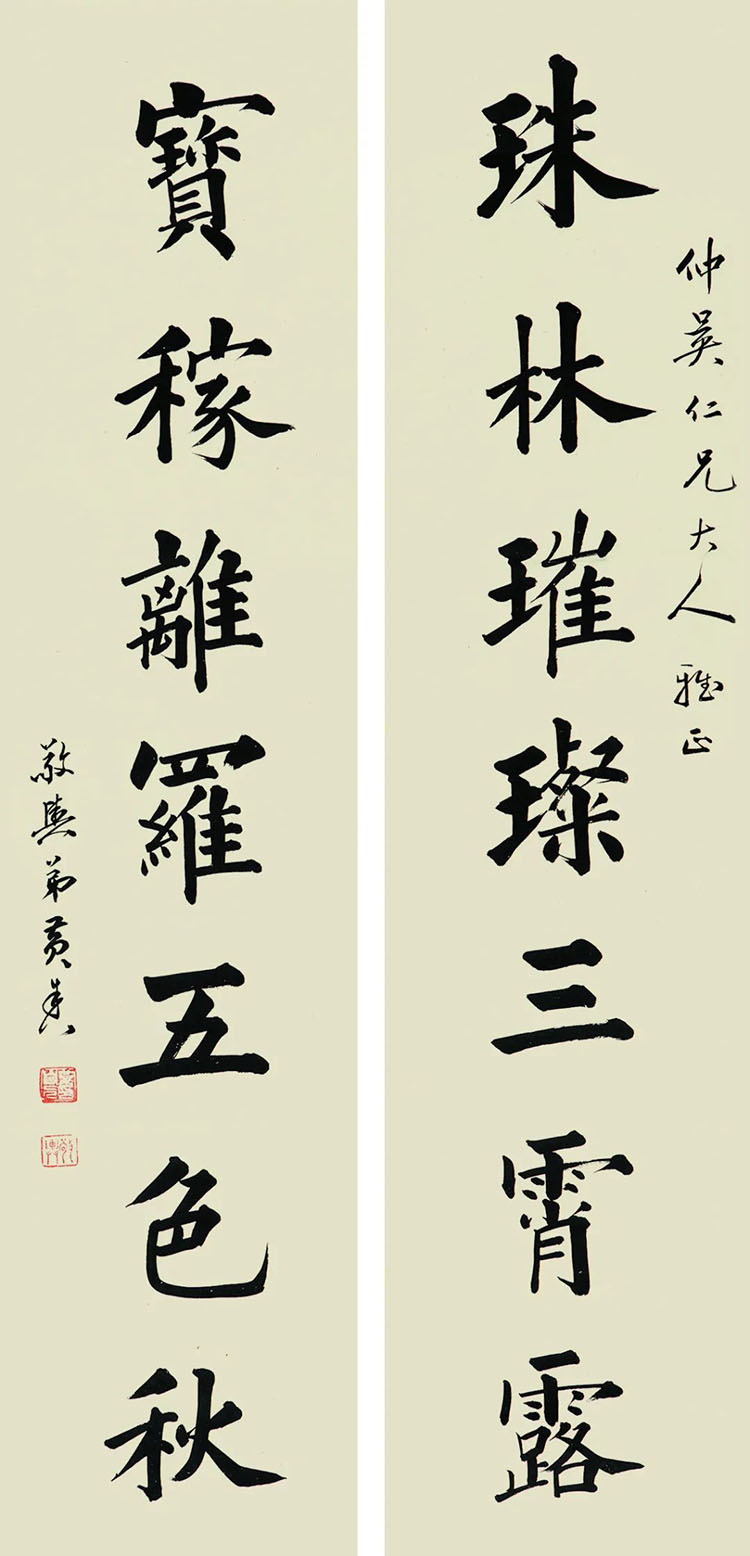 仲吳仁兄大人雅正
珠林璀璨三霄露
寶稼離羅五色秋
敬輿弟黃